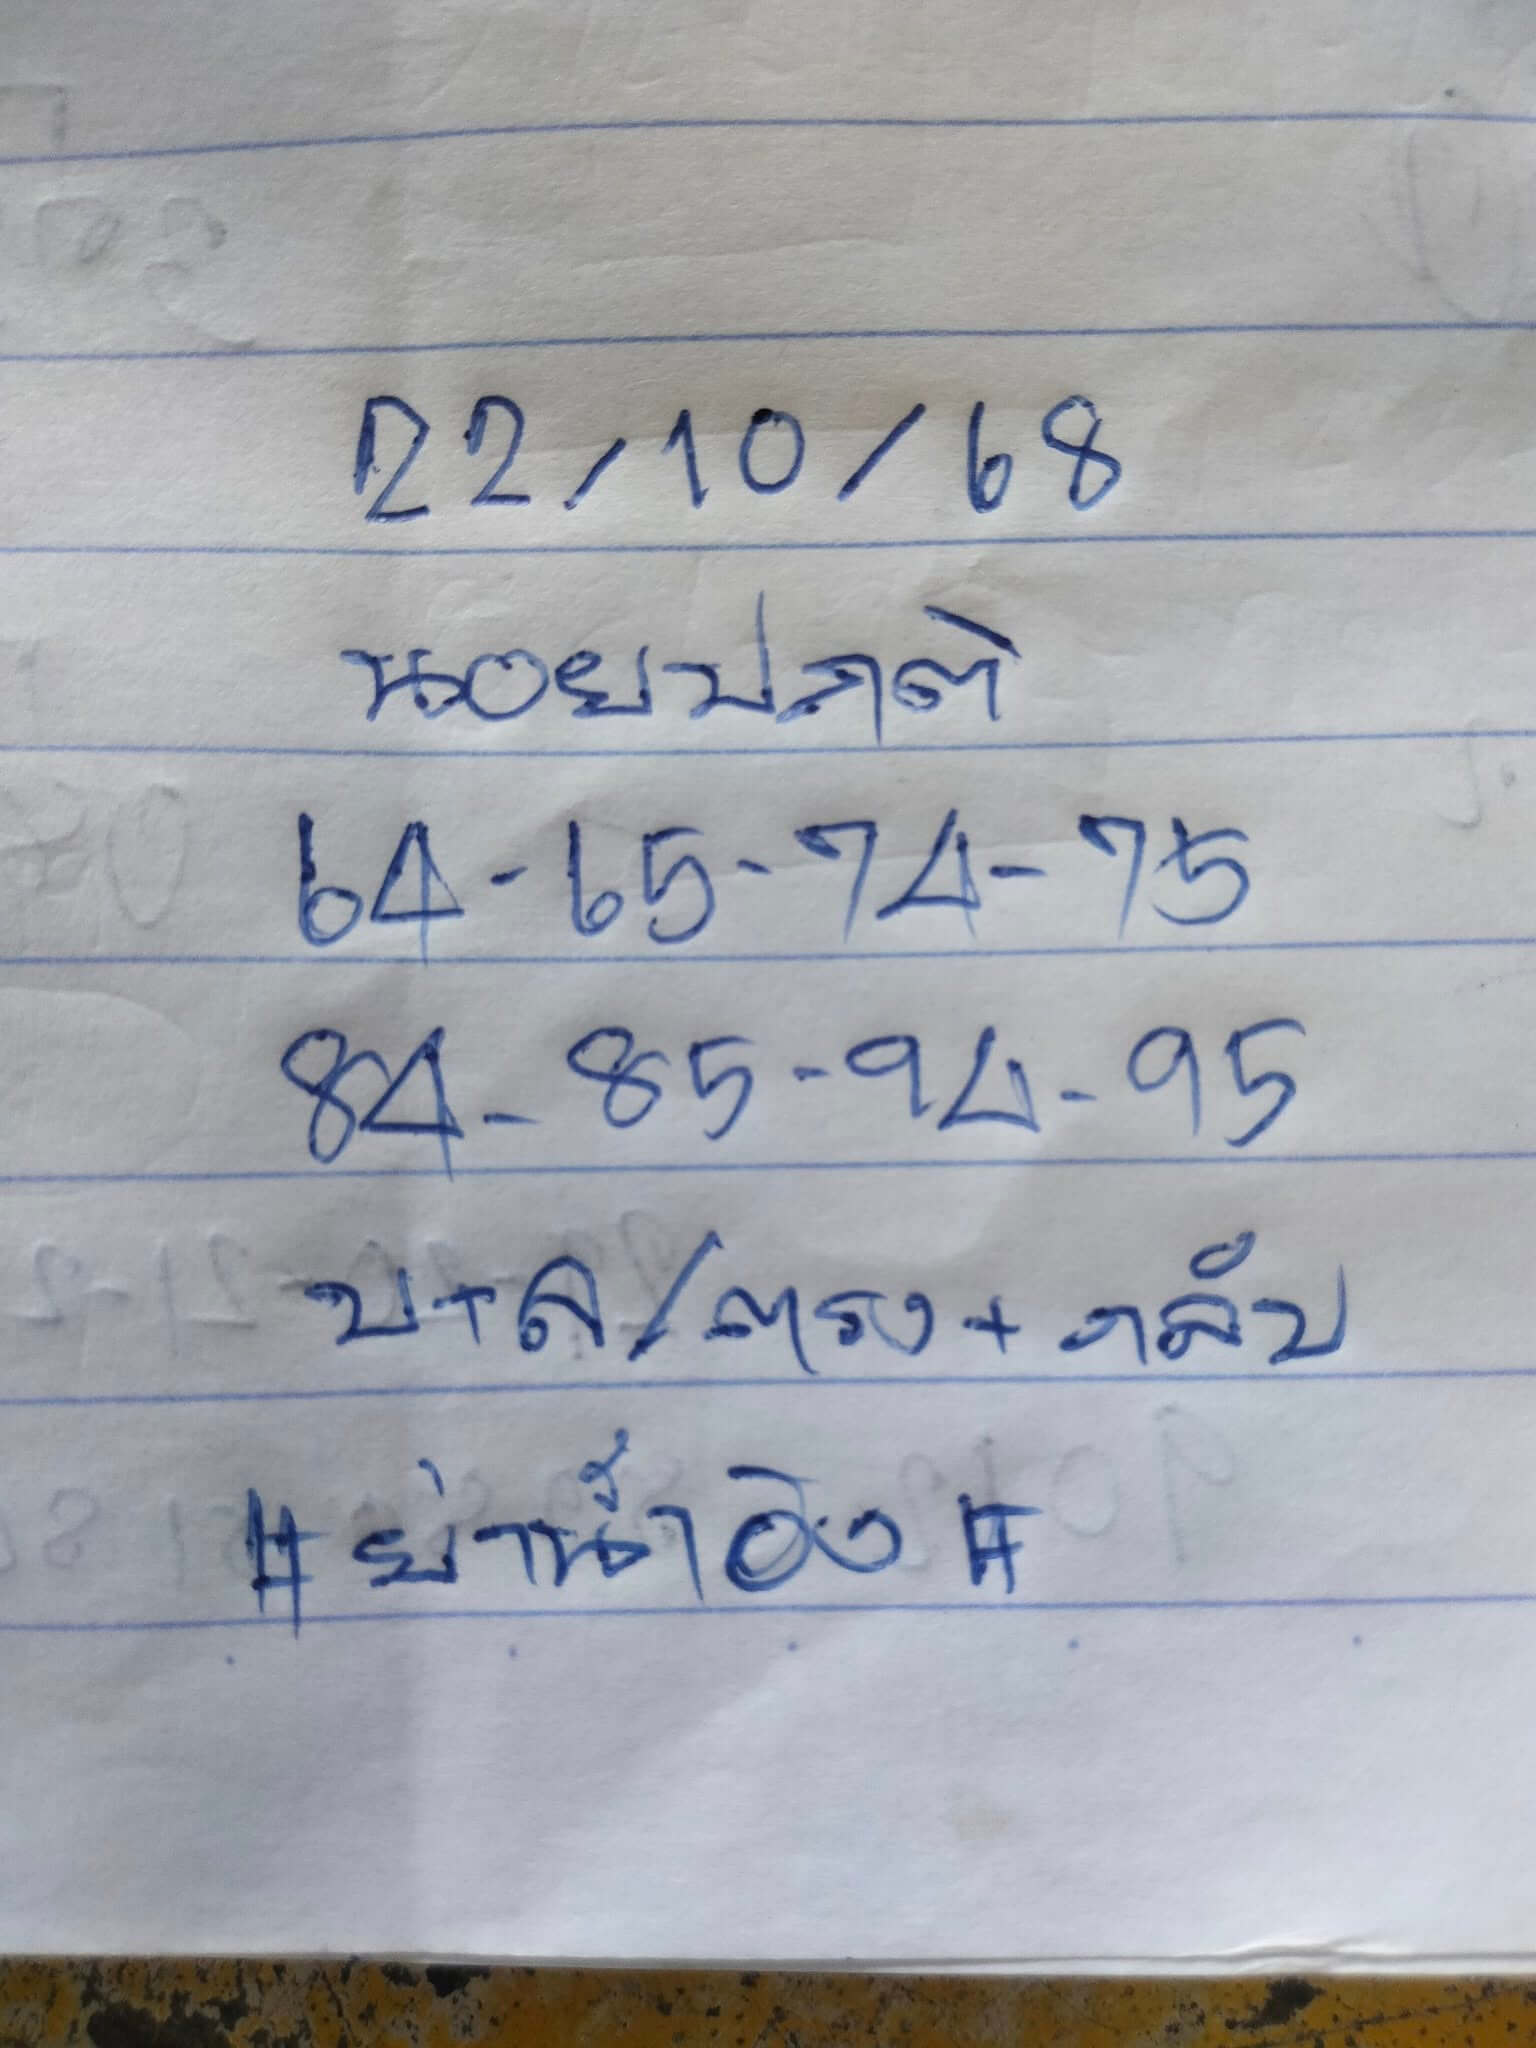 22/10/68
นอยปกติ
64-65-74-75
84-85-94-95
บ+ล/ตรง+กลับ
#ย่าน้ำอิง#